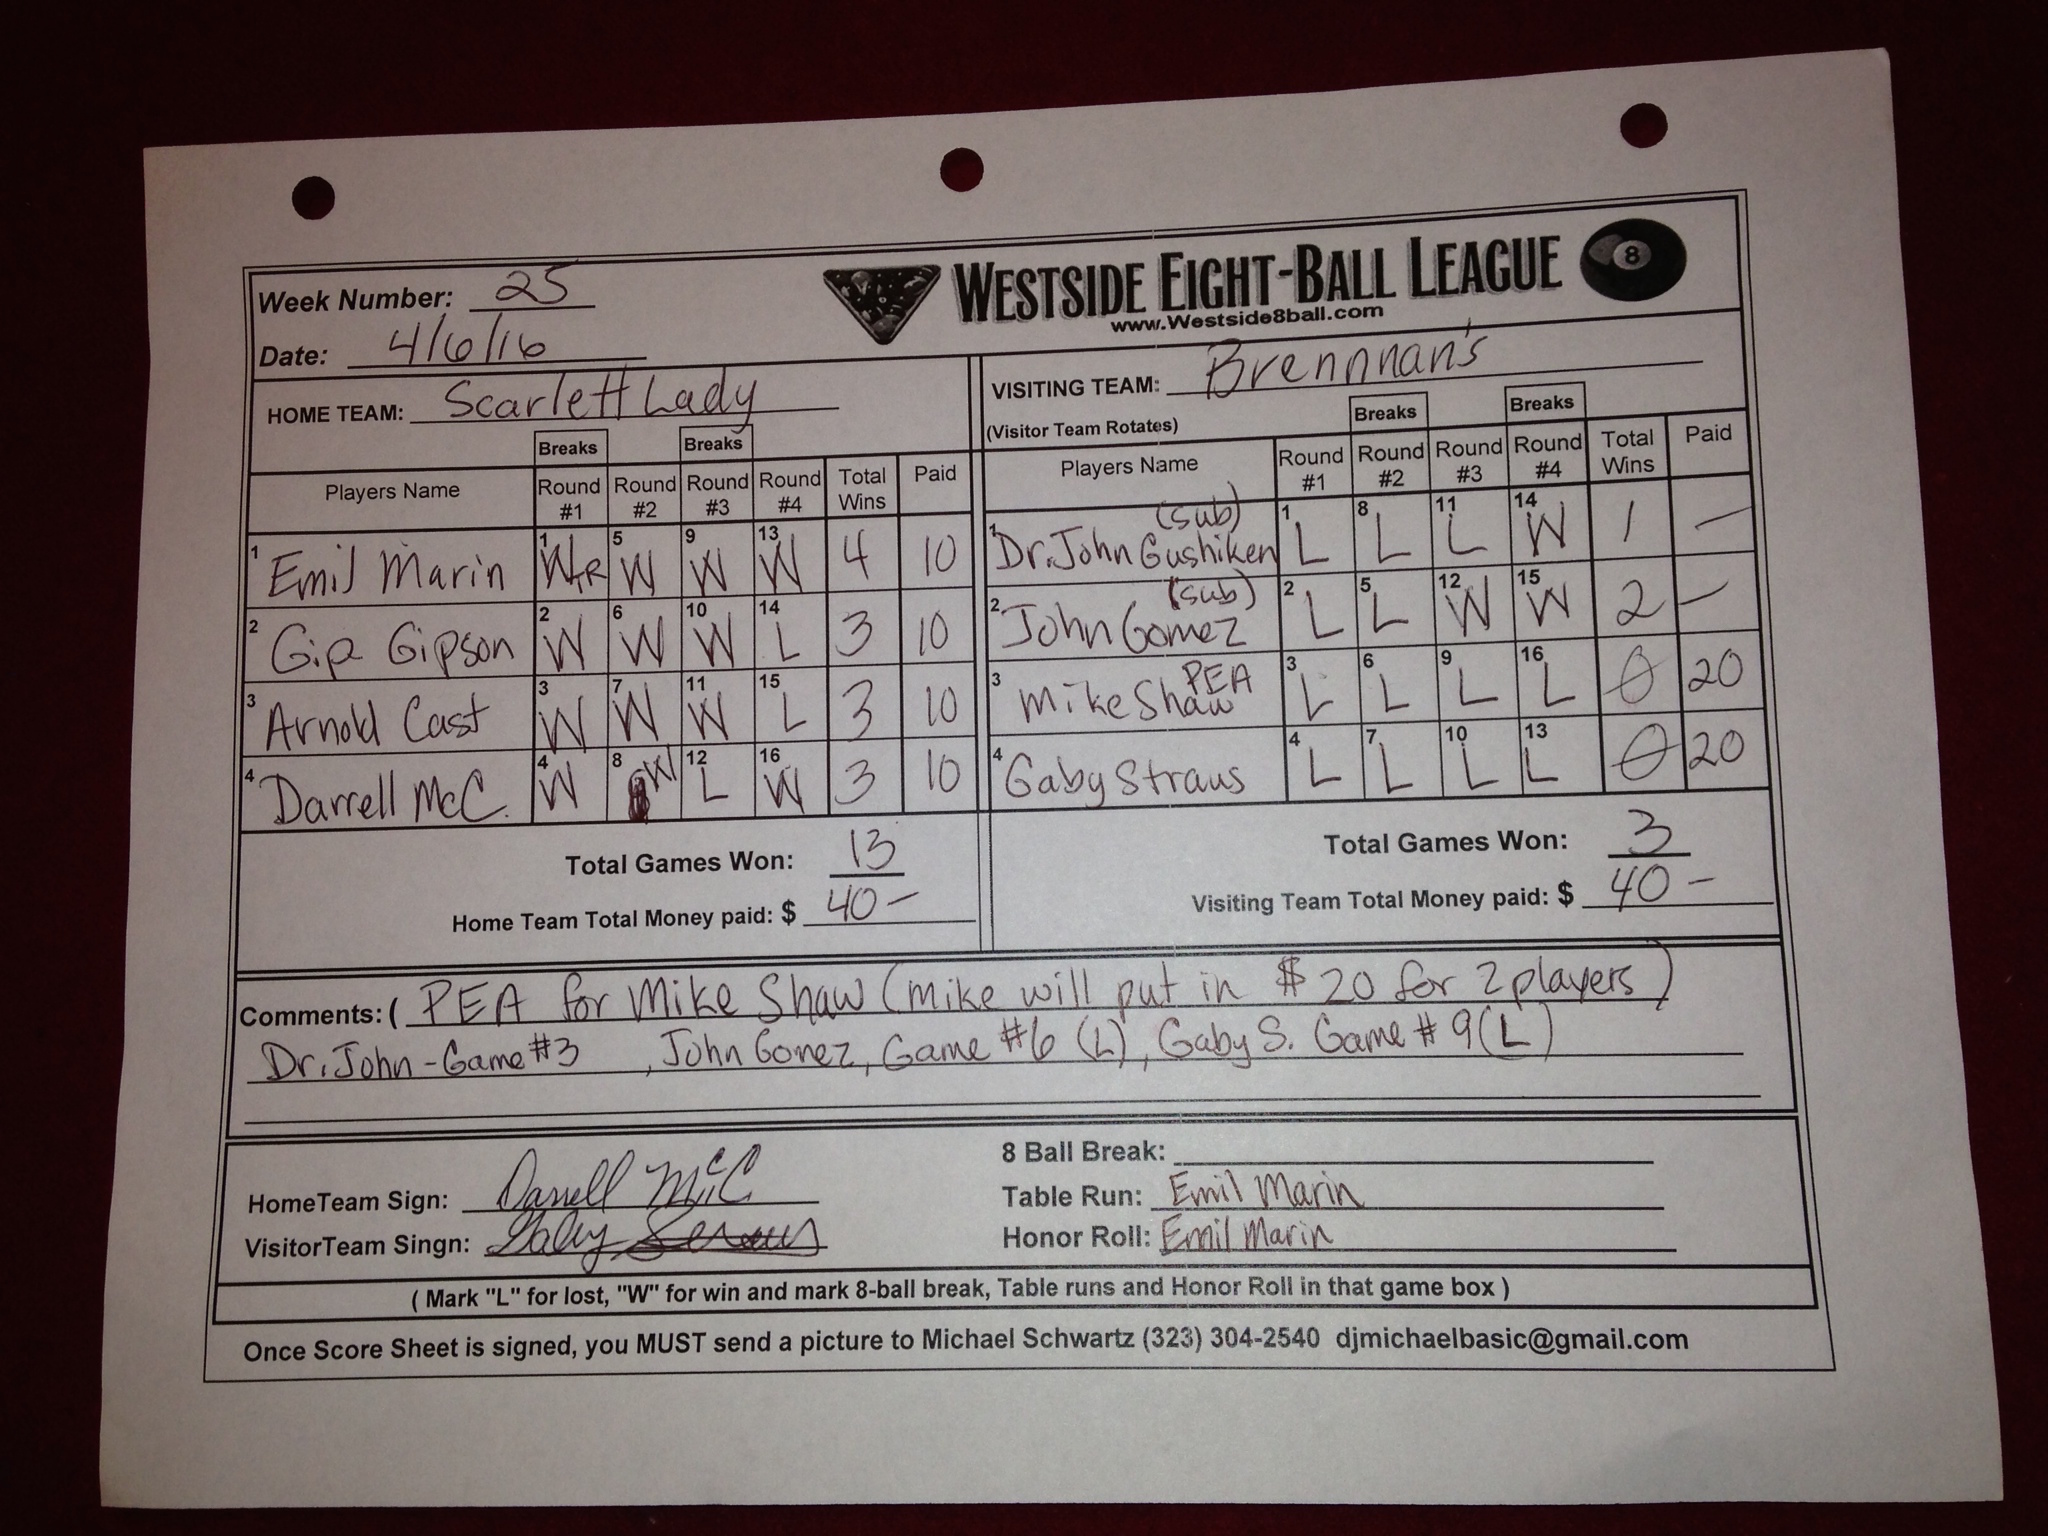 Week Number: 25
WESTSIDE EIGHT-BALL LEAGUE 8
www.Westside8ball.com
Date: 4/6/16
HOME TEAM: Scarlett Lady
VISITING TEAM: Brennnan's
(Visitor Team Rotates)
Breaks Breaks Breaks Breaks
Players Name Round #1 Round #2 Round #3 Round #4 Total Wins Paid Players Name Round #1 Round #2 Round #3 Round #4 Total Wins Paid
1 Emil Marin 1 WTR 5 W 9 W 13 W 4 10 1 Dr. John Gushiken (sub) 1 L 8 L 11 L 14 W 1 —
2 Gip Gipson 2 W 6 W 10 W 14 L 3 10 2 John Gomez (sub) 2 L 5 L 12 W 15 W 2 —
3 Arnold Cast 3 W 7 W 11 W 15 L 3 10 3 Mike Shaw PEA 3 L 6 L 9 L 16 L 0 20
4 Darrell McC. 4 W 8 W 12 L 16 W 3 10 4 Gaby Straus 4 L 7 L 10 L 13 L 0 20
Total Games Won: 13 Total Games Won: 3
Home Team Total Money paid: $ 40 — Visiting Team Total Money paid: $ 40 —
Comments: ( PEA for Mike Shaw (Mike will put in $20 for 2 players)
Dr. John - Game #3 , John Gonez, Game #6 (L), Gaby S. Game #9 (L)
8 Ball Break:
HomeTeam Sign: Darrell McC Table Run: Emil Marin
VisitorTeam Singn: Gaby Honor Roll: Emil Marin
( Mark "L" for lost, "W" for win and mark 8-ball break, Table runs and Honor Roll in that game box )
Once Score Sheet is signed, you MUST send a picture to Michael Schwartz (323) 304-2540 djmichaelbasic@gmail.com